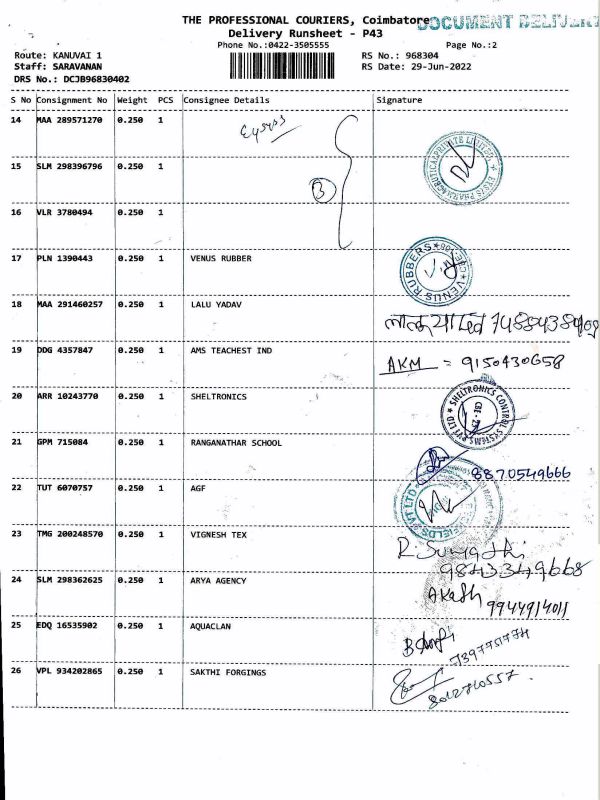 THE PROFESSIONAL COURIERS, Coimbatore
DOCUMENT DELIVERY
Delivery Runsheet - P43
Phone No.:0422-3505555 Page No.:2
Route: KANUVAI 1 RS No.: 968304
Staff: SARAVANAN RS Date: 29-Jun-2022
DRS No.: DCJB96830402
S No Consignment No Weight PCS Consignee Details Signature
14 MAA 289571270 0.250 1
15 SLM 298396796 0.250 1
3
16 VLR 3780494 0.250 1
17 PLN 1390443 0.250 1 VENUS RUBBER
VENUS RUBBERS
18 MAA 291460257 0.250 1 LALU YADAV
19 DDG 4357847 0.250 1 AMS TEACHEST IND
AKM = 9150430658
20 ARR 10243770 0.250 1 SHELTRONICS
SHELTRONICS CONTROL SYSTEMS PVT LTD
21 GPM 715084 0.250 1 RANGANATHAR SCHOOL
8870549666
22 TUT 6070757 0.250 1 AGF
23 TMG 200248570 0.250 1 VIGNESH TEX
R. Sumathi
9843349668
24 SLM 298362625 0.250 1 ARYA AGENCY
Akash 9944914011
25 EDQ 16535902 0.250 1 AQUACLAN
26 VPL 934202865 0.250 1 SAKTHI FORGINGS
8012710557.